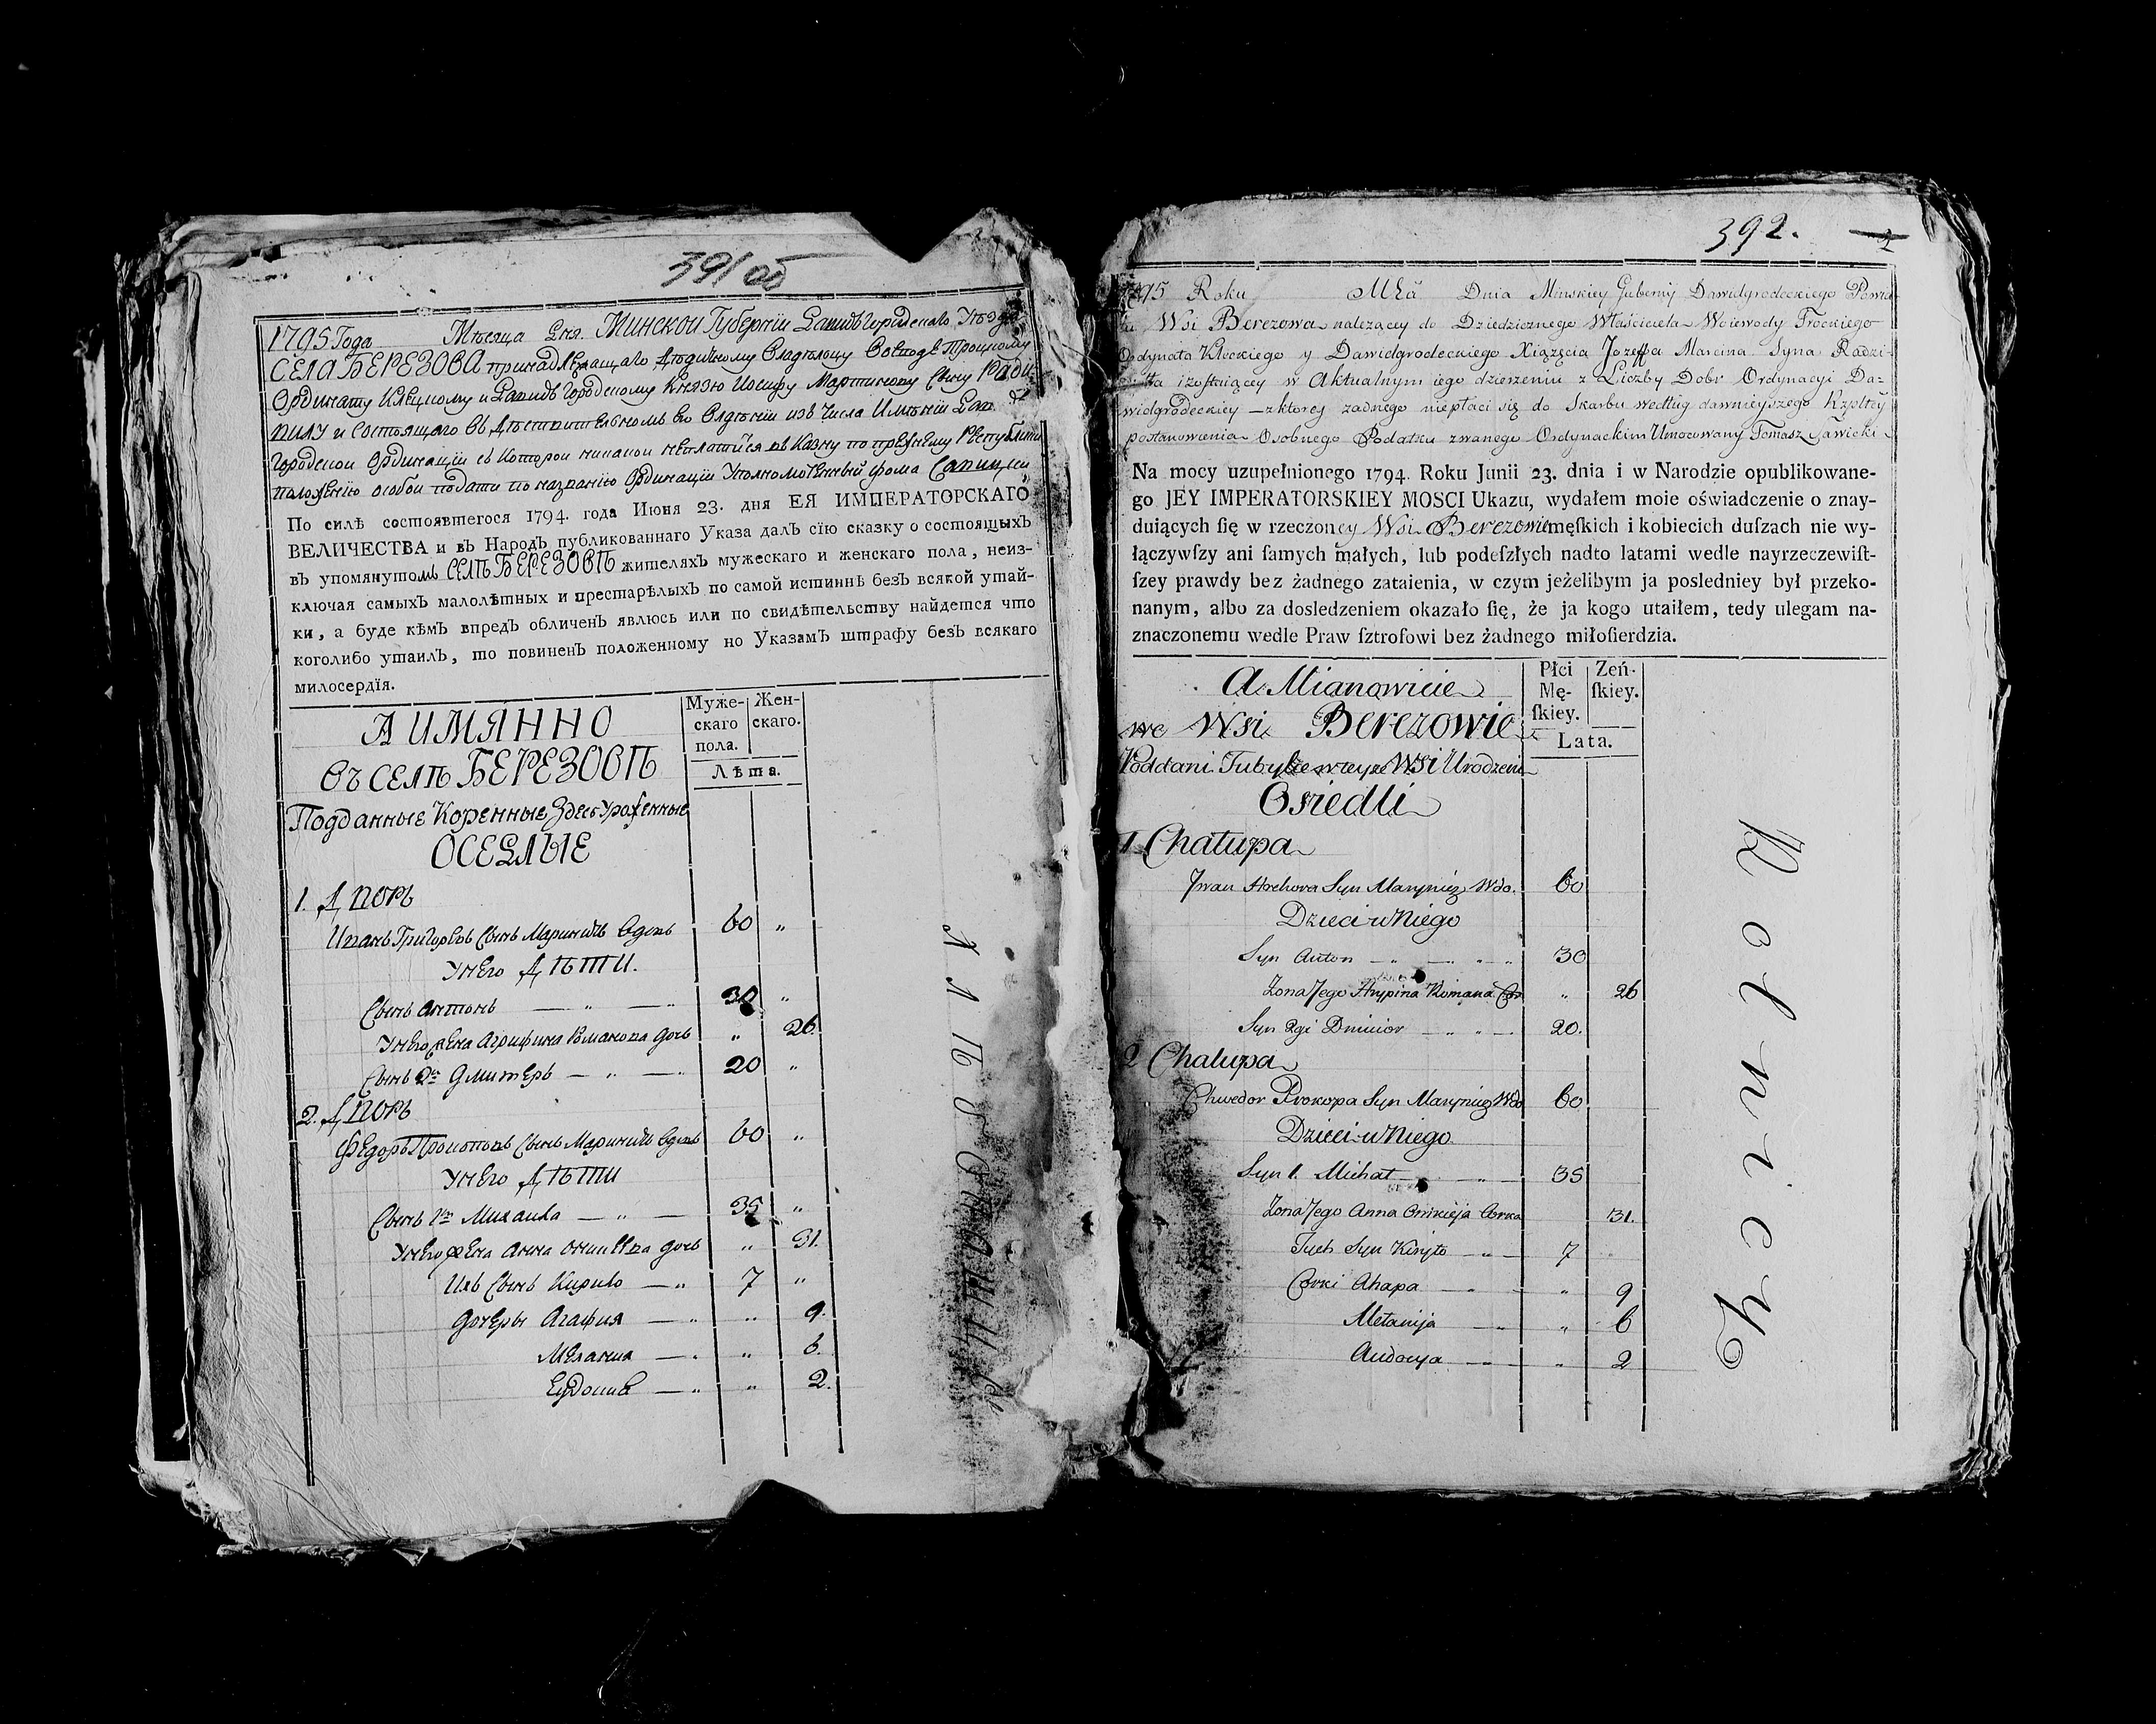 391 об
1795 Года Мѣсяца Дня. Минской Губернїи Давидъ Городецкаго Уѣзда
СЕЛА БЕРЕЗОВА принадлежащаго Дѣдичному Владѣльцу Воеводѣ Троцкому
Ординату Клецкому и Давидъ Городскому Князю Иосифу Мартинову Сыну Радзи-
вилу и Состоящаго въ Дѣйствительномъ Его Владѣнїи изъ Числа Имѣнїй Давидъ
Городской Ординацїи съ которой никакой неплатится въ Казну по прежнему Республики
положенїю особой подати по названїю Ординацїи Уполномоченный Фома
По силѣ состоявшегося 1794. года Июня 23. дня ЕЯ ИМПЕРАТОРСКАГО
ВЕЛИЧЕСТВА и въ Народъ публикованнаго Указа далъ сїю сказку о состоящыхъ
въ упомянутомъ СЕЛѢ БЕРЕЗОВѢ жителяхъ мужескаго и женскаго пола, неиз-
ключая самыхъ малолѣтныхъ и престарѣлыхъ по самой истиннѣ безъ всякой утай-
ки, а буде кѣмъ впредъ обличенъ явлюсь или по свидѣтельству найдется что
коголибо утаилъ, то повиненъ положенному по Указамъ штрафу безъ всякаго
милосердїя.
А ИМЯННО
Муже-
скаго
пола.
Жен-
скаго.
Лѣта.
ВЪ СЕЛѢ БЕРЕЗОВѢ
Подданные Коренные Здесь Уроженные
ОСЕДЛЫЕ
1. Дворъ
Иванъ Григорьевъ Сынъ Мариничъ вдовъ 60 „
У него Дѣти.
Сынъ Антонъ — „ — „ 30 „
У него жена Агрифина Романова дочь „ 26.
Сынъ 2й Дмитеръ — „ — „ 20 „
2. Дворъ
Федоръ Прокоповъ Сынъ Мариничъ вдовъ 60 „
У него Дѣти
Сынъ 1й Михайла — „ — 35 „
У него жена Анна Аникѣева дочь „ 31.
Ихъ Сынъ Кирило — „ 7 „
Дочеры Агафия — „ „ 9.
Мелания — „ „ 6.
Еудокия — „ „ 2.
392.
1795 Roku Mca Dnia Minskiey Gubernij Dawidgrodeckiego Powia-
tu Wsi Berezowa należącey do Dziedzicznego Właściciela Woiewody Trockiego
Ordynata Kleckiego y Dawidgrodeckiego Xiązęcia Jozeffa Marcina Syna Radzi-
wiłła i zostaiącey w Aktualnym iego dzierzeniu z Liczby Dobr Ordynacyi Da-
widgrodeckiey — z ktorey zadnego niepłaci się do Skarbu według dawnieyszego Rzpltey
postanowienia Osobnego Podatku zwanego Ordynackim Umocowany Tomasz Sawicki
Na mocy uzupełnionego 1794. Roku Junii 23. dnia i w Narodzie opublikowane-
go JEY IMPERATORSKIEY MOSCI Ukazu, wydałem moie oświadczenie o znay-
duiących ſię w rzeczoney Wsi Berezowie męſkich i kobiecich duſzach nie wy-
łączywſzy ani ſamych małych, lub podeſzłych nadto latami wedle nayrzeczewiſt-
ſzey prawdy bez żadnego zataienia, w czym jeżelibym ja posledniey był przeko-
nanym, albo za dosledzeniem okazało ſię, że ja kogo utaiłem, tedy ulegam na-
znaczonemu wedle Praw ſztrofowi bez żadnego miłoſierdzia.
A Mianowicie
Płci
Mę-
ſkiey.
Zeń-
ſkiey.
Lata.
we Wsi Berezowie
Poddani Tubylce w teyze Wsi Urodzeni
Osiedli
1 Chałupa
Jwan Hrehora Syn Marynicz Wdo. 60
Dzieci u Niego
Syn Anton — „ — „ „ 30
Zona Jego Hrypina Romana Cor „ 26
Syn 2gi Dmitior — „ „ — 20.
2 Chałupa
Chwedor Prokopa Syn Marynicz Wdo 60
Dzieci u Niego
Syn 1. Michał — „ — 35
Zona Jego Anna Onikieja Corka 31.
Tych Syn Kiryło — „ — 7 „
Corki Ahapa — „ — „ 9
Mełanija — „ „ 6
Audocija — „ „ 2
Rolnicy